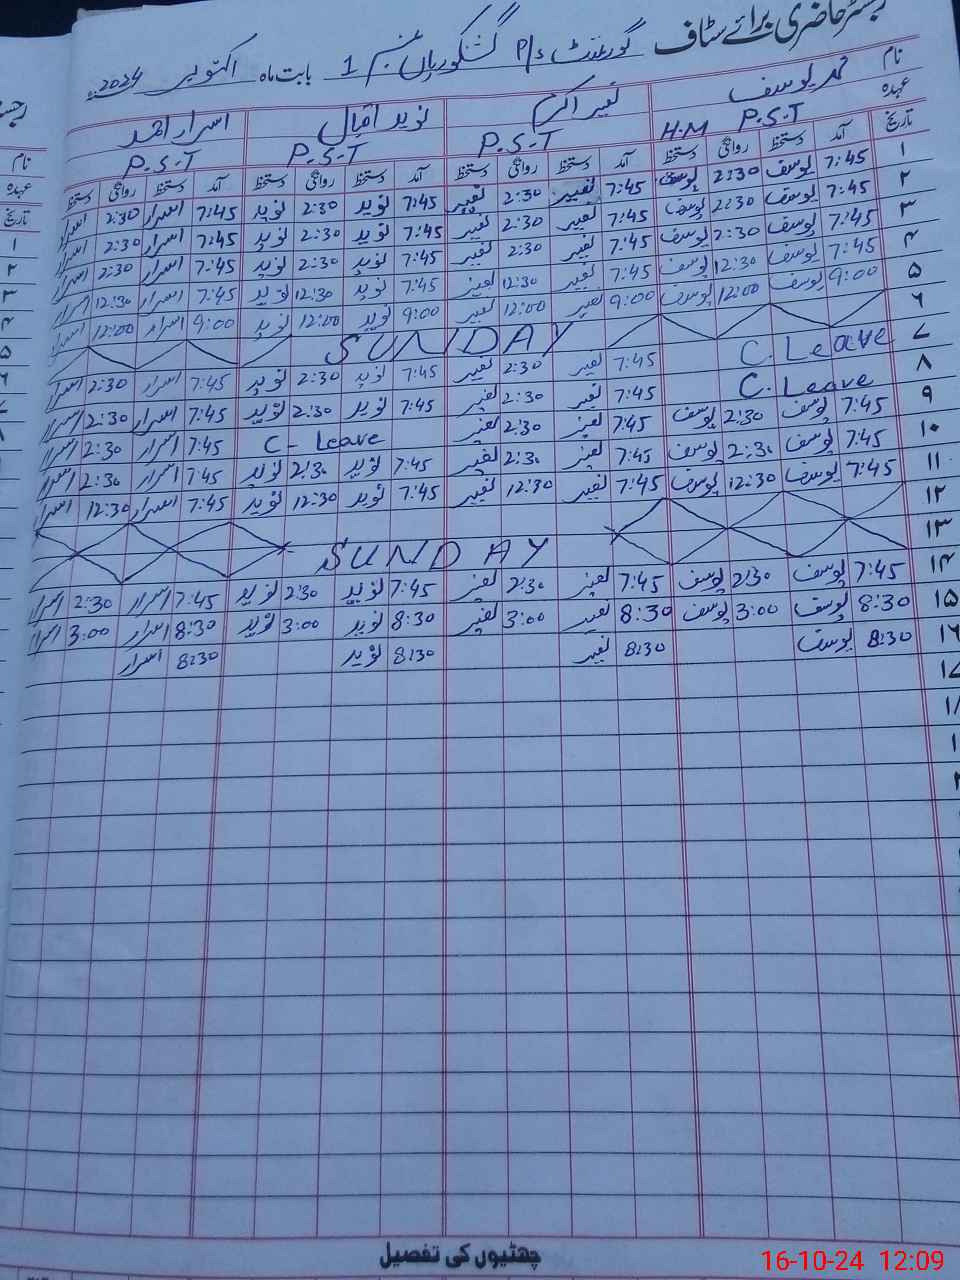 رجسٹر حاضری برائے سٹاف گورنمنٹ P/S گشکوریاں نمبر 1 بابت ماہ اکتوبر 2024ء
نام محمد یوسف نصیر اکرم نوید اقبال اسرار احمد
عہدہ P.S.T H.M P.S.T P.S.T P.S.T
تاریخ آمد دستخط روانگی دستخط آمد دستخط روانگی دستخط آمد دستخط روانگی دستخط آمد دستخط روانگی دستخط
۱ 7:45 یوسف 2:30 یوسف 7:45 نصیر 2:30 نصیر 7:45 نوید 2:30 نوید 7:45 اسرار 2:30 اسرار
۲ 7:45 یوسف 2:30 یوسف 7:45 نصیر 2:30 نصیر 7:45 نوید 2:30 نوید 7:45 اسرار 2:30 اسرار
۳ 7:45 یوسف 2:30 یوسف 7:45 نصیر 2:30 نصیر 7:45 نوید 2:30 نوید 7:45 اسرار 2:30 اسرار
۴ 7:45 یوسف 12:30 یوسف 7:45 نصیر 12:30 نصیر 7:45 نوید 12:30 نوید 7:45 اسرار 12:30 اسرار
۵ 9:00 یوسف 12:00 یوسف 9:00 نصیر 12:00 نصیر 9:00 نوید 12:00 نوید 9:00 اسرار 12:00 اسرار
۶ SUNDAY
۷ C. Leave 7:45 نصیر 2:30 نصیر 7:45 نوید 2:30 نوید 7:45 اسرار 2:30 اسرار
۸ C. Leave 7:45 نصیر 2:30 نصیر 7:45 نوید 2:30 نوید 7:45 اسرار 2:30 اسرار
۹ 7:45 یوسف 2:30 یوسف 7:45 نصیر 2:30 نصیر C- Leave 7:45 اسرار 2:30 اسرار
۱۰ 7:45 یوسف 2:30 یوسف 7:45 نصیر 2:30 نصیر 7:45 نوید 2:30 نوید 7:45 اسرار 2:30 اسرار
۱۱ 7:45 یوسف 12:30 یوسف 7:45 نصیر 12:30 نصیر 7:45 نوید 12:30 نوید 7:45 اسرار 12:30 اسرار
۱۲
۱۳ SUNDAY
۱۴ 7:45 یوسف 2:30 یوسف 7:45 نصیر 2:30 نصیر 7:45 نوید 2:30 نوید 7:45 اسرار 2:30 اسرار
۱۵ 8:30 یوسف 3:00 یوسف 8:30 نصیر 3:00 نصیر 8:30 نوید 3:00 نوید 8:30 اسرار 3:00 اسرار
۱۶ 8:30 یوسف 8:30 نصیر 8:30 نوید 8:30 اسرار
۱۷
چھٹیوں کی تفصیل
16-10-24 12:09
نام
عہدہ
تاریخ
۱
۲
۳
۴
۵
۶
۷
۸